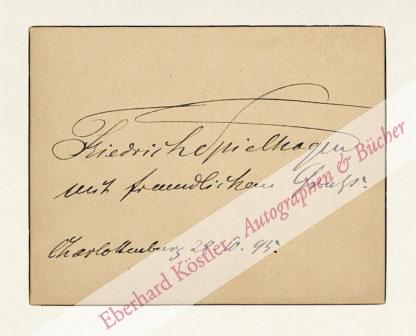 Friedrich Spielhagen
mit freundlichem Gruß.
Charlottenburg 28. 10. 95.
Eberhard Köstler - Autographen & Bücher